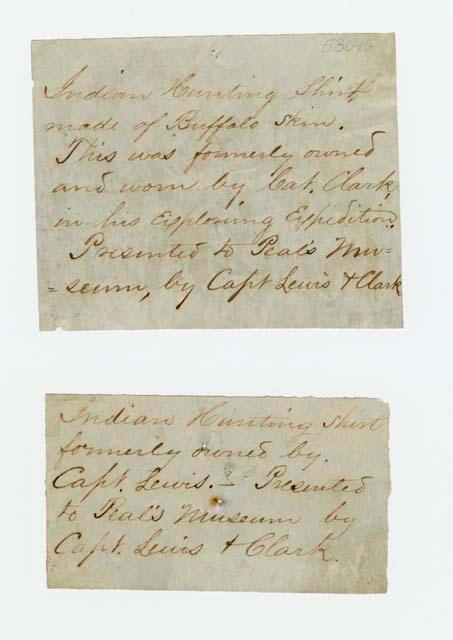 53046
Indian Hunting Shirt,
made of Buffalo Skin.
This was formerly owned
and worn by Cat. Clark
in his Exploring Expedition.
Presented to Peal's Mu=
=seum, by Capt Lewis & Clark
Indian Hunting Shirt
formerly owned by.
Capt. Lewis. – Presented
to Peal's Museum by
Capt. Lewis & Clark.